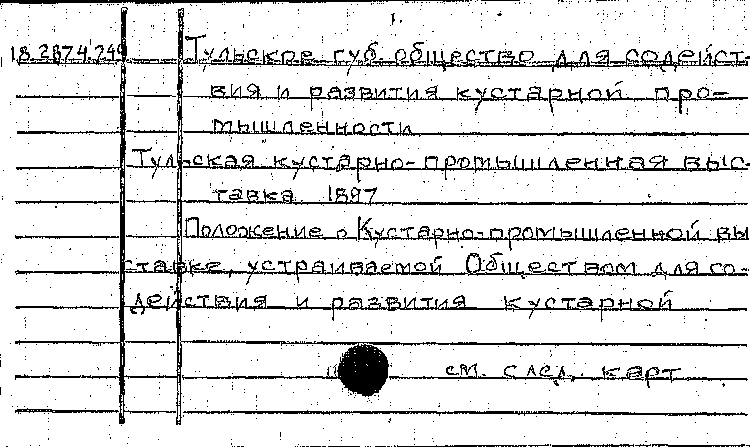 1.
18.2874.249 Тульское губ. общество для содейст-
вия и развития кустарной про-
мышленности
Тульская кустарно-промышленная выс-
тавка 1897
Положение о Кустарно-промышленной вы
ставке, устраиваемой Обществом для со-
действия и развития кустарной
см. след. карт